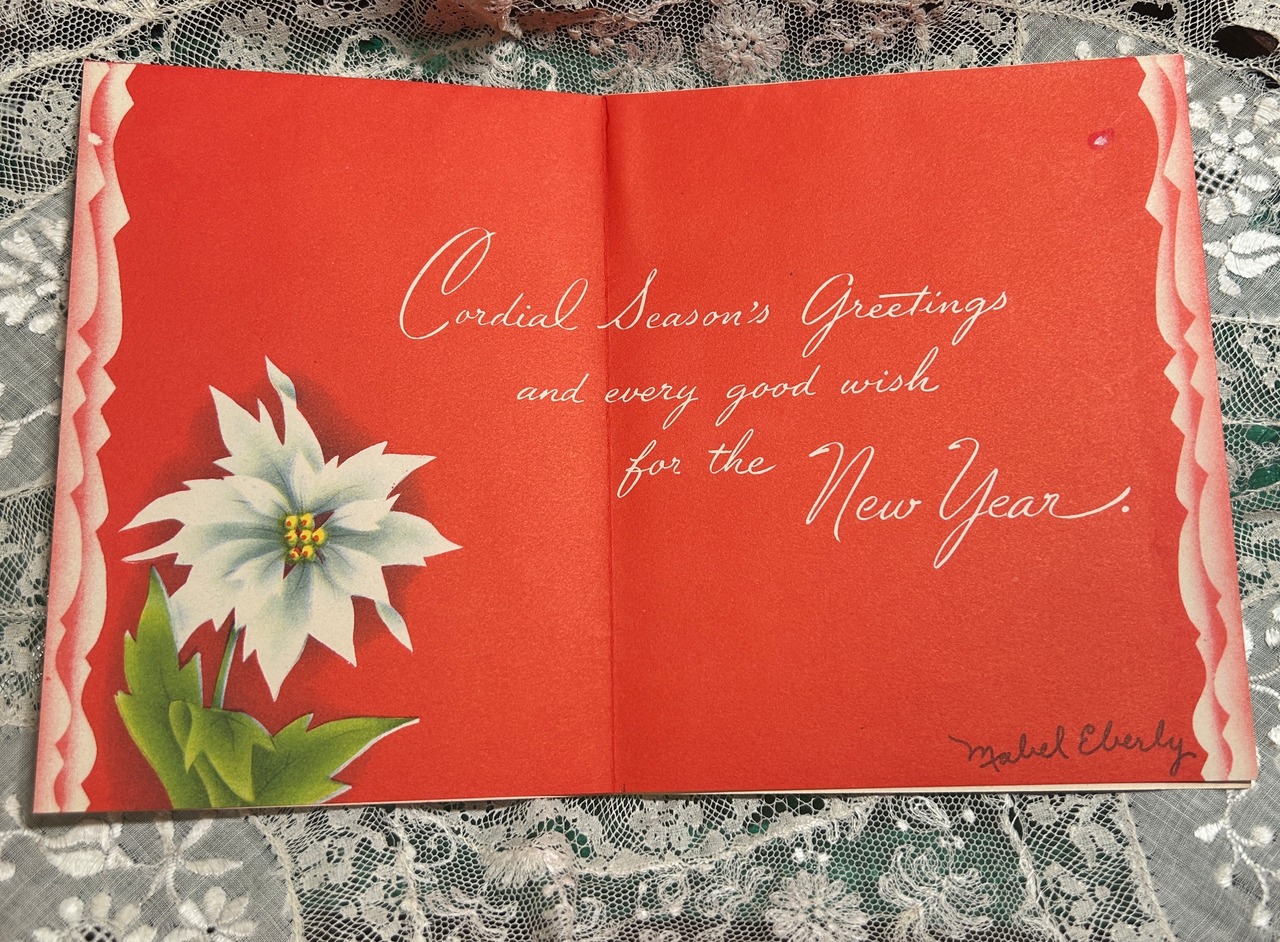 Cordial Season's Greetings
and every good wish
for the New Year.
Mabel Eberly